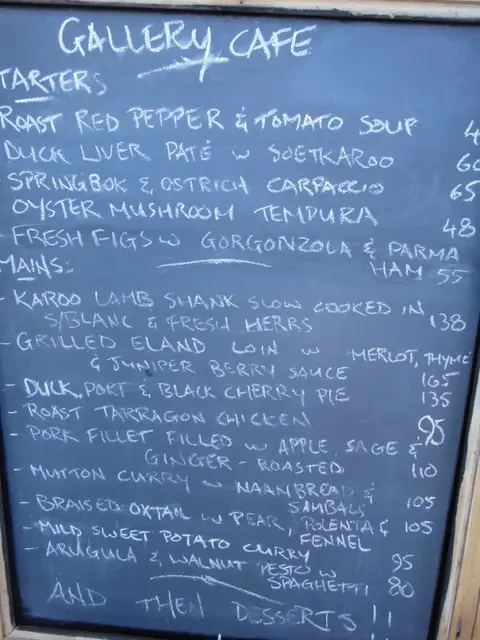 GALLERY CAFE
TARTERS
ROAST RED PEPPER & TOMATO SOUP 4
DUCK LIVER PATÉ W SOETKAROO 60
- SPRINGBOK & OSTRICH CARPACCIO 65
OYSTER MUSHROOM TEMPURA 48
- FRESH FIGS W GORGONZOLA & PARMA
HAM 55
MAINS:
- KAROO LAMB SHANK SLOW COOKED IN
S/BLANC & FRESH HERBS 138
- GRILLED ELAND LOIN W MERLOT, THYME
& JUNIPER BERRY SAUCE 165
- DUCK, PORT & BLACK CHERRY PIE 135
- ROAST TARRAGON CHICKEN 95
- PORK FILLET FILLED W APPLE SAGE &
GINGER - ROASTED 110
- MUTTON CURRY W NAANBREAD &
SAMBALS 105
- BRAISED OXTAIL W PEAR, POLENTA &
FENNEL 105
- MILD SWEET POTATO CURRY 95
- ARUGULA & WALNUT PESTO W
SPAGHETTI 80
AND THEN DESSERTS !!